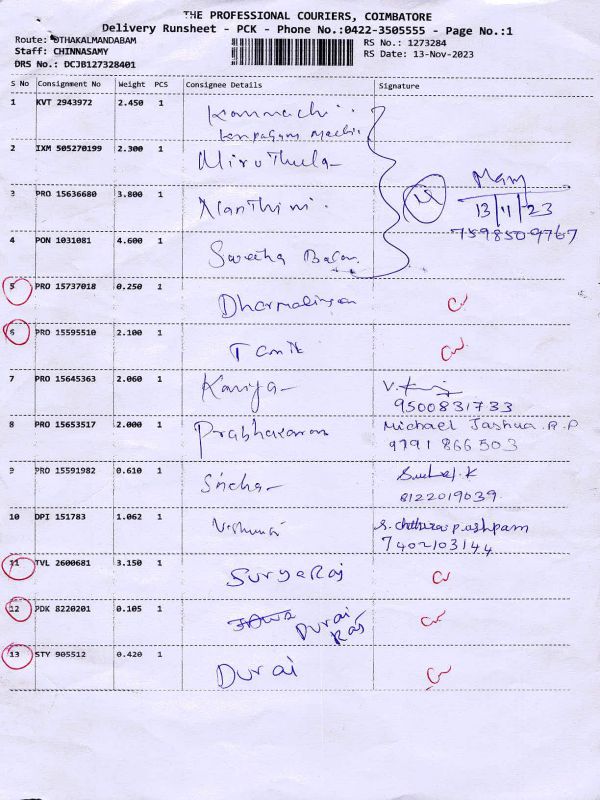 THE PROFESSIONAL COURIERS, COIMBATORE
Delivery Runsheet - PCK - Phone No.:0422-3505555 - Page No.:1
Route: OTHAKALMANDABAM
RS No.: 1273284
Staff: CHINNASAMY
RS Date: 13-Nov-2023
DRS No.: DCJB127328401
S No Consignment No Weight PCS Consignee Details Signature
1 KVT 2943972 2.450 1 Kammachi
2 IXM 505270199 2.300 1 Miruthula
13/11/23
3 PRO 15636680 3.800 1 Nanthini
7598509767
4 PON 1031081 4.600 1 Swetha
5 PRO 15737018 0.250 1 Dharmalingam
6 PRO 15595510 2.100 1
7 PRO 15645363 2.060 1 Kaviya
9500831733
8 PRO 15653517 2.000 1 Prabhakaran Michael Jashua.R.P
9791 866 503
9 PRO 15591982 0.610 1 Sneha
8122019039
10 DPI 151783 1.062 1
7402103144
11 TVL 2600681 3.150 1 Surya Raj
12 PDK 8220201 0.105 1 Durai Raj
13 STY 905512 0.420 1 Durai